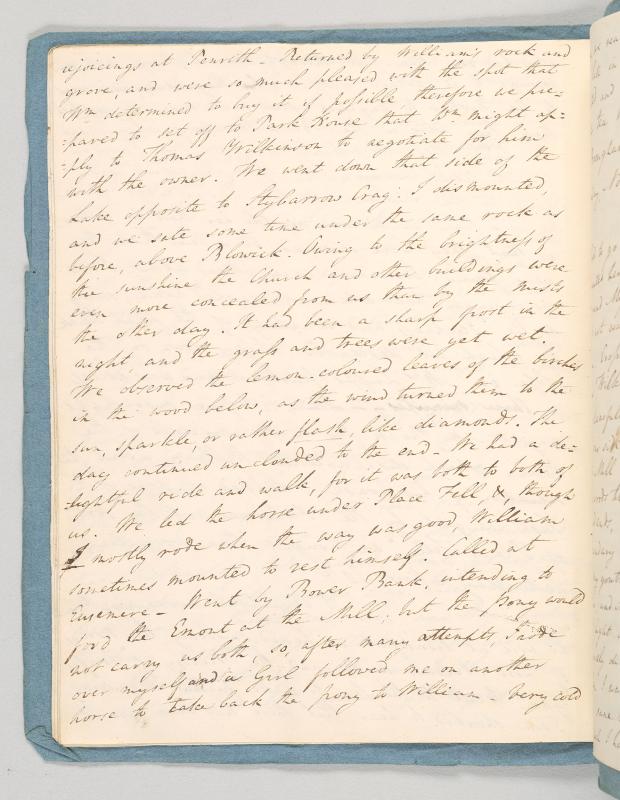 rejoicings at Penrith - Returned by William's rock and
grove, and were so much pleased with the spot that
Wm determined to buy it if possible therefore we pre=
=pared to set off to Park House that Wm might ap=
=ply to Thomas Wilkinson to negotiate for him
with the owner. We went down that side of the
Lake opposite to Stybarrow Crag. I dismounted,
and we sate some time under the same rock as
before, above Blowick. Owing to the brightness of
the sunshine the Church and other buildings were
even more concealed from us than by the mists
the other day. It had been a sharp frost in the
night, and the grass and trees were yet wet.
We observed the lemon-coloured leaves of the birches
in the wood below, as the wind turned them to the
sun, sparkle, or rather flash, like diamonds. The
day continued unclouded to the end - We had a de=
=lightful ride and walk, for it was both to both of
us. We led the horse under Place Fell, &, though
I mostly rode when the way was good, William
sometimes mounted to rest himself. Called at
Eusemere - Went by Bower Bank, intending to
ford the Emont at the Mill: but the pony would
not carry us both, so, after many attempts, I rode
over myself and a Girl followed me on another
horse to take back the pony to William - Very cold